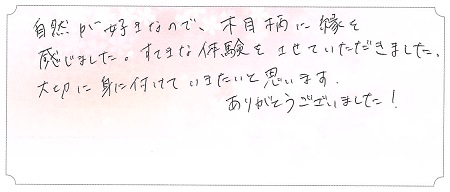 自然が好きなので、木目柄に縁を
感じました。すてきな体験をさせていただきました。
大切に身に付けていきたいと思います。
ありがとうございました!